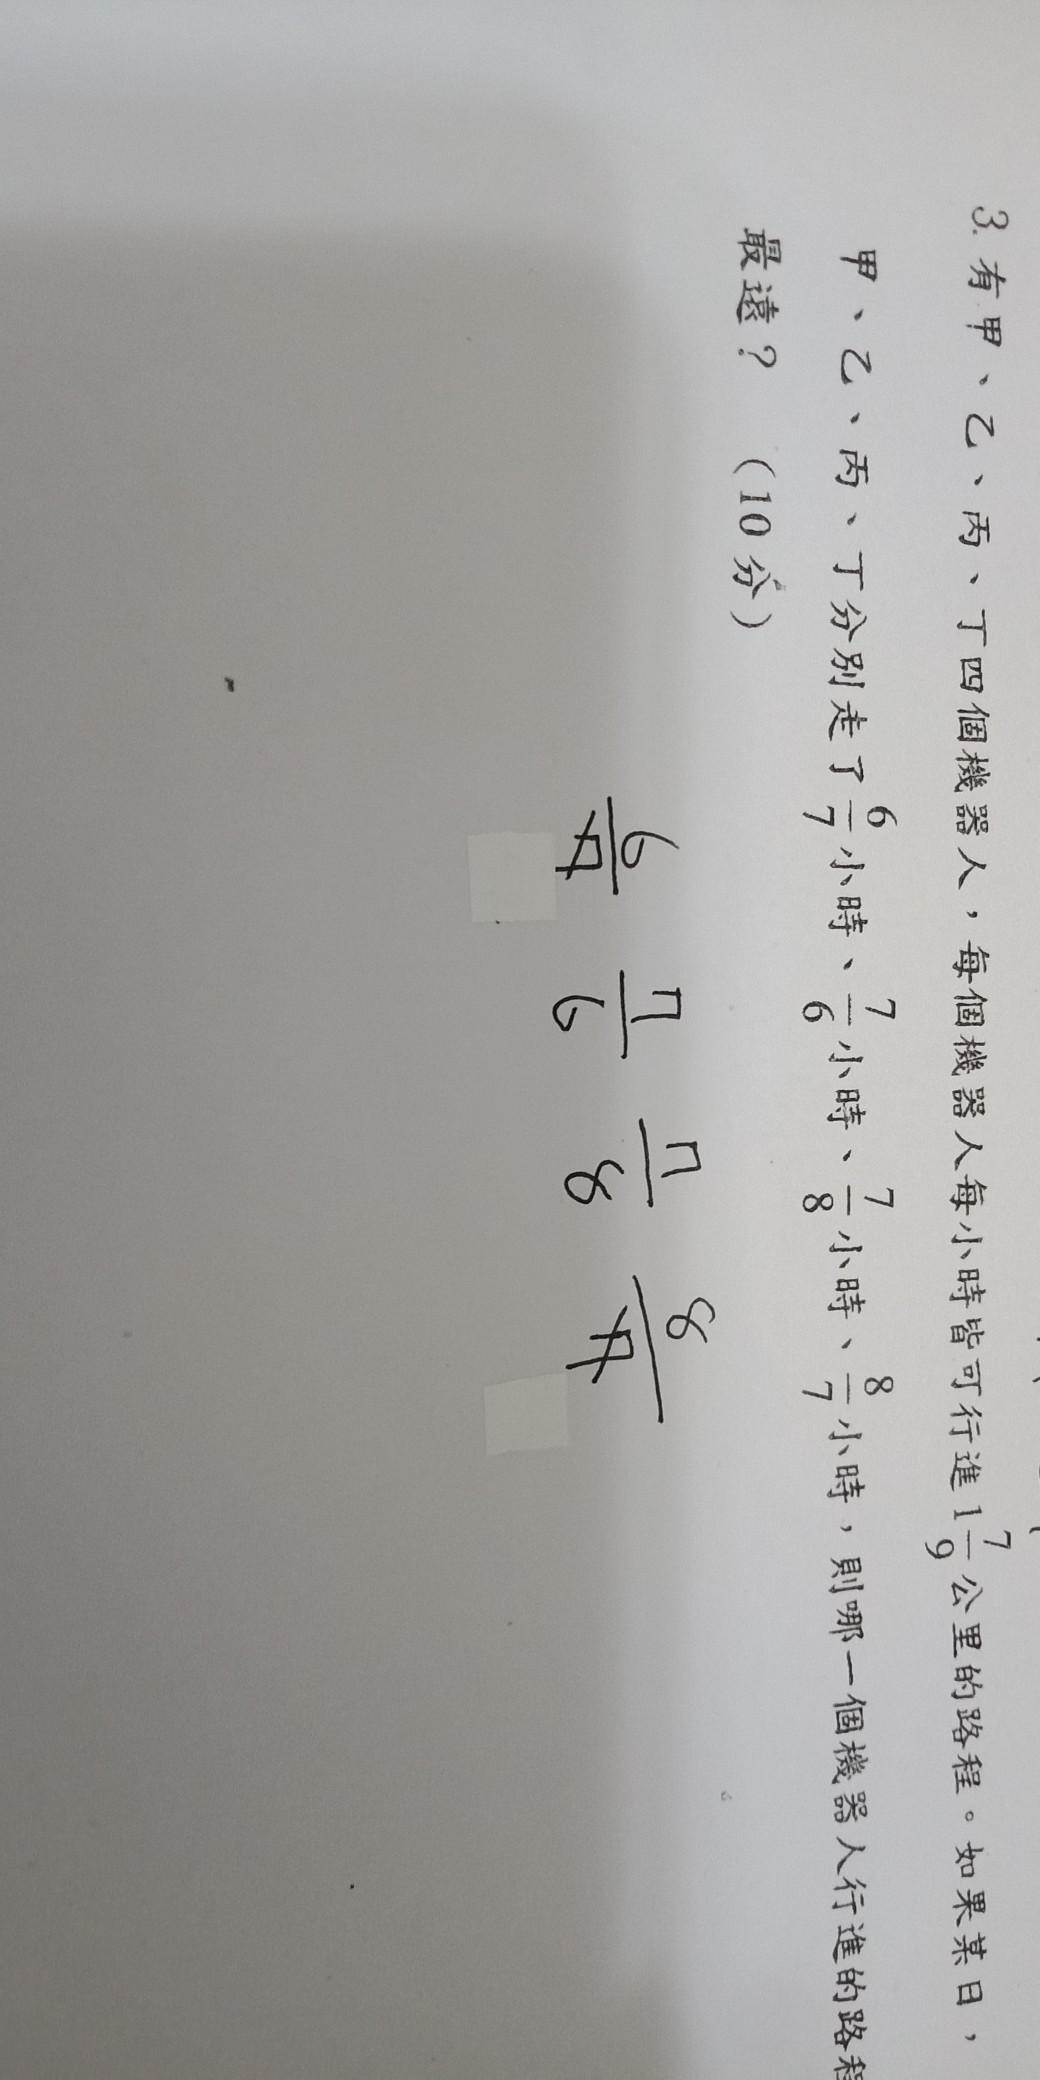 3. 有甲、乙、丙、丁四個機器人，每個機器人每小時皆可行進 1 7/9 公里的路程。如果某日，
甲、乙、丙、丁分別走了 6/7 小時、7/6 小時、7/8 小時、8/7 小時，則哪一個機器人行進的路程
最遠？（10分）
6/7 7/6 7/8 8/7